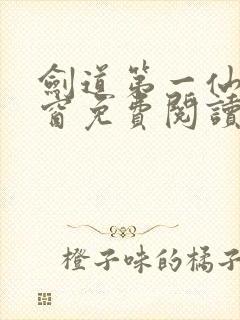 劍道第一仙
窗免費閱讀
橙子味的橘子